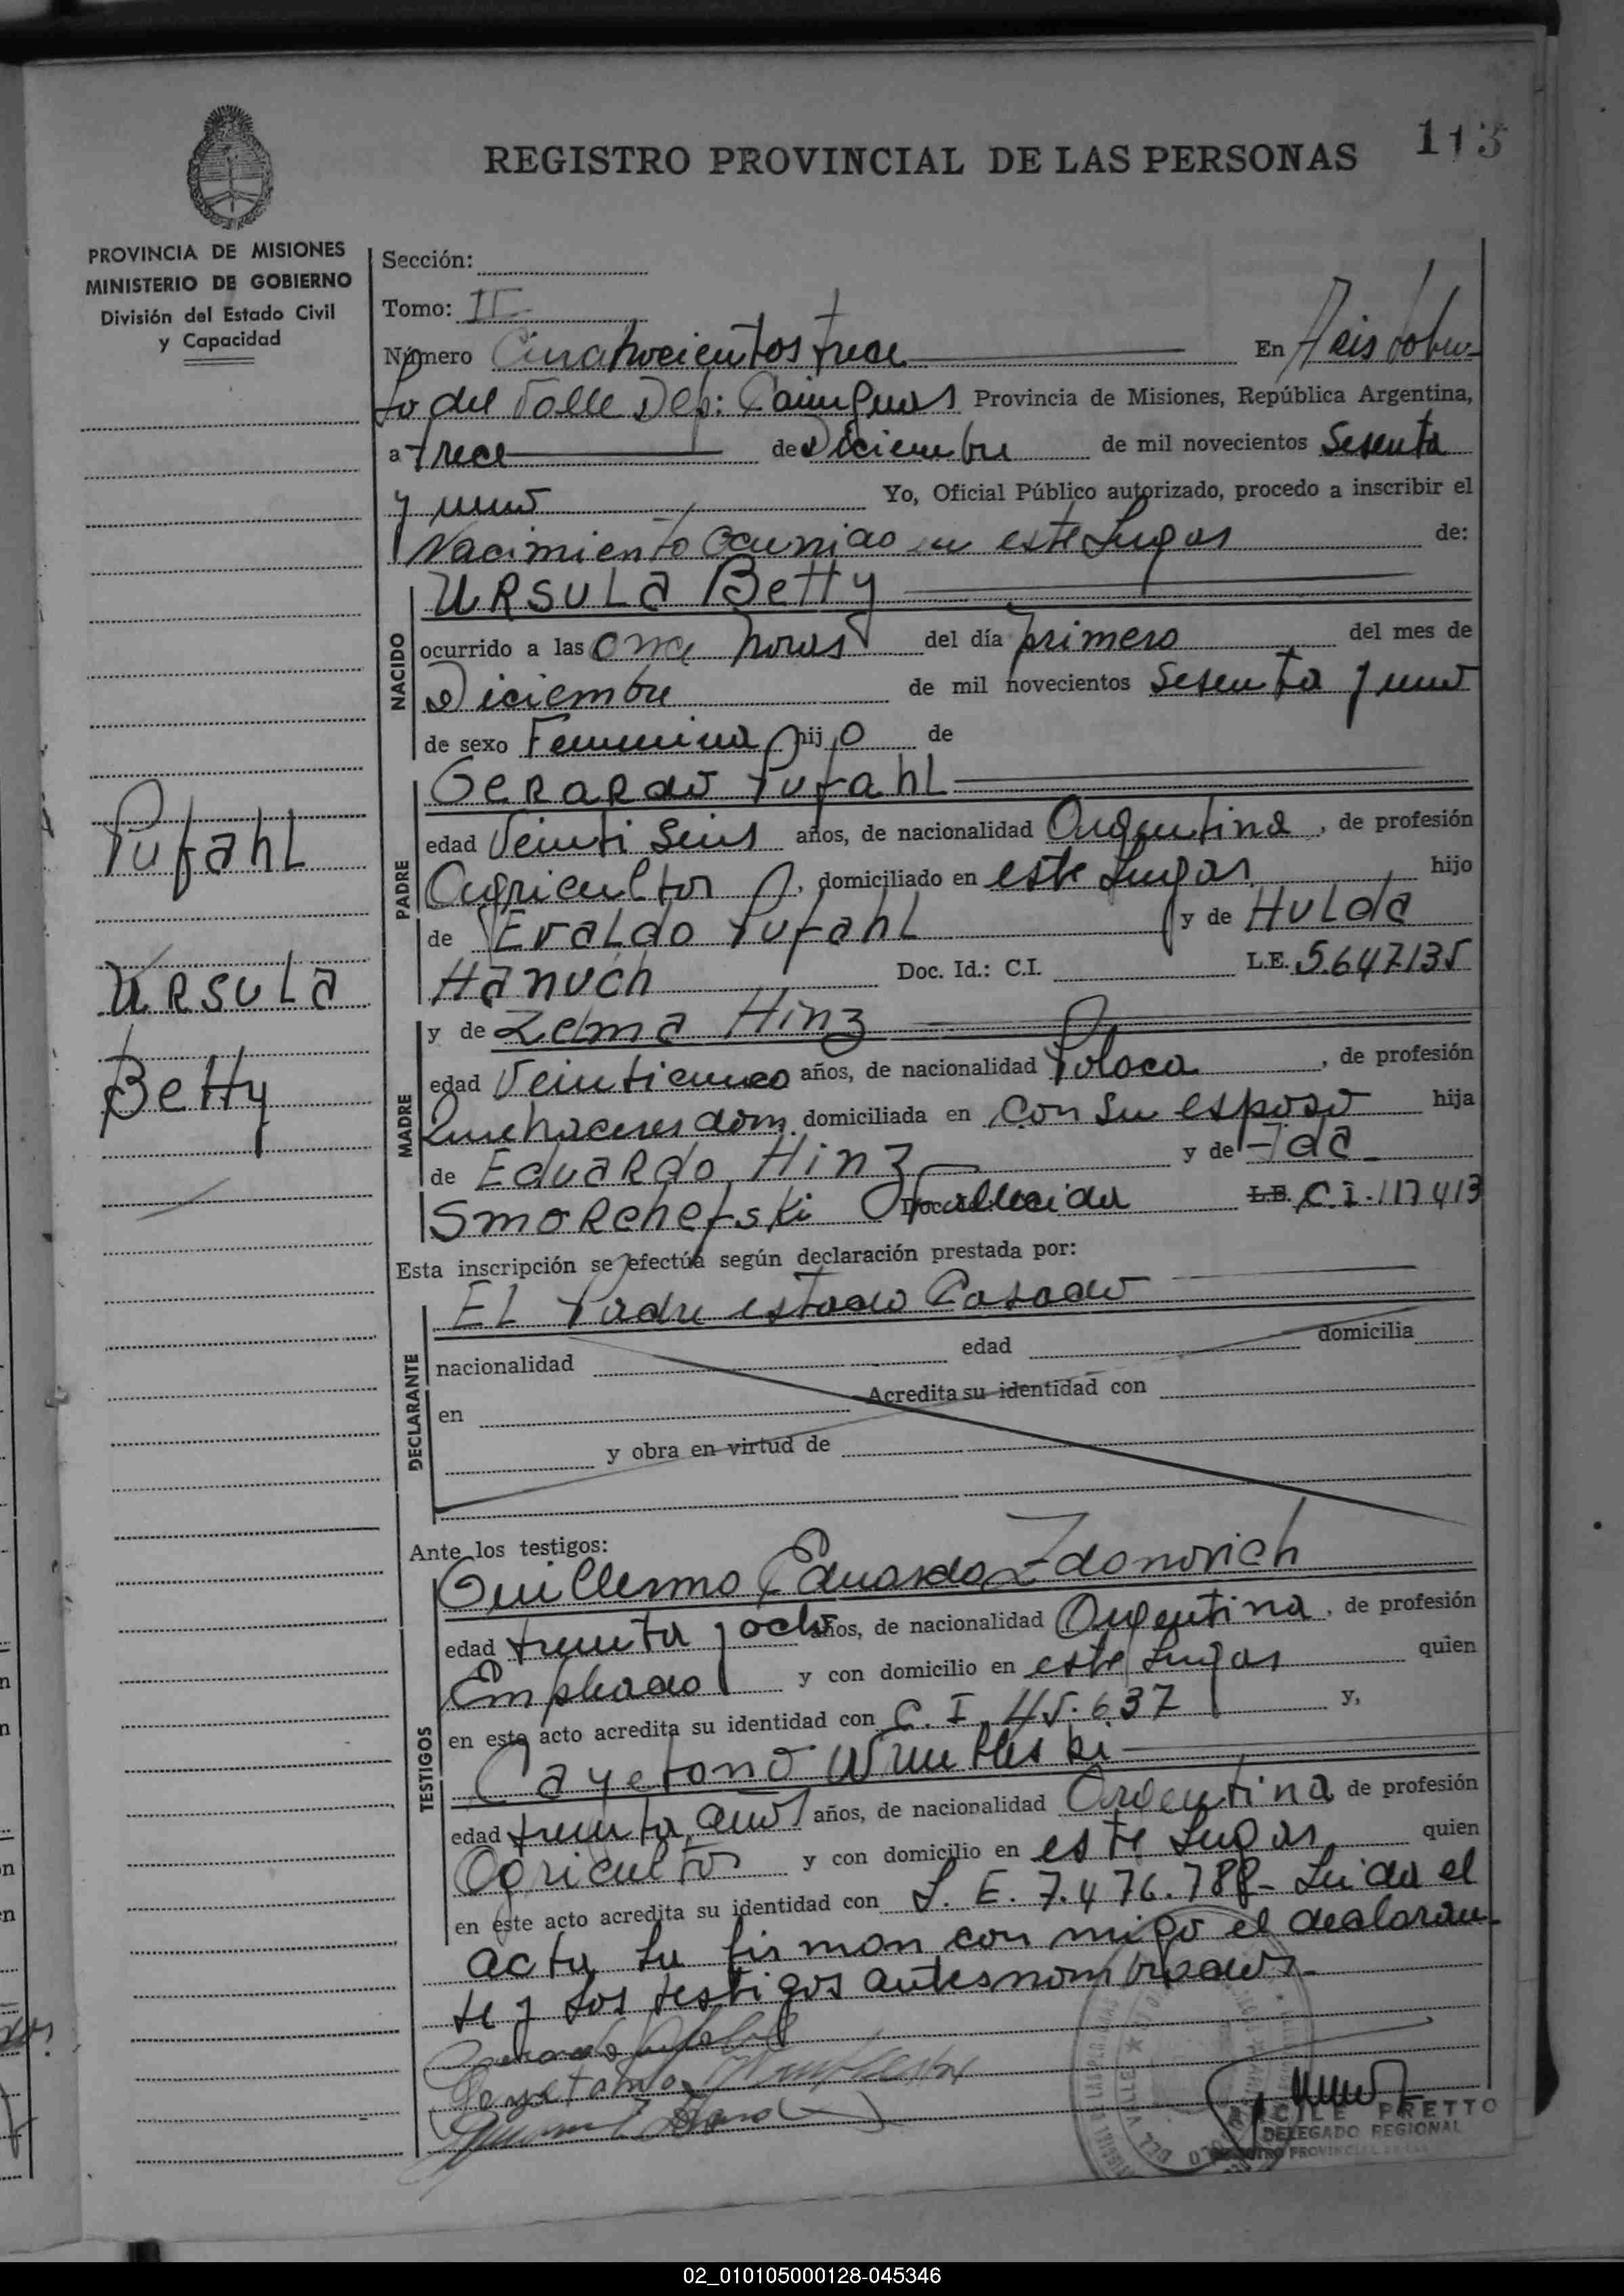 113
REGISTRO PROVINCIAL DE LAS PERSONAS
PROVINCIA DE MISIONES
MINISTERIO DE GOBIERNO
División del Estado Civil
y Capacidad
Pufahl
URSULA
Betty
Sección:
Tomo: II
Número trece En Aristóbu-
lo del Valle Dep: Cainguas Provincia de Misiones, República Argentina,
a trece de Diciembre de mil novecientos Sesenta
y uno Yo, Oficial Público autorizado, procedo a inscribir el
Nacimiento ocurrido en este Lugar de:
NACIDO
URSULA Betty
ocurrido a las once horas del día primero del mes de
Diciembre de mil novecientos Sesenta y uno
de sexo Femenino hijo de
PADRE
Gerardo Pufahl
edad Veinti Seis años, de nacionalidad Argentina, de profesión
Agricultor, domiciliado en este Lugar hijo
de Evaldo Pufahl y de Hulda
Hanuch Doc. Id.: C.I. L.E. 5.647135
MADRE
y de Zelma Hinz
edad Veinticinco años, de nacionalidad Polaca, de profesión
Quehaceres dom. domiciliada en con su esposo hija
de Eduardo Hinz y de Ida
Smorchefski Fallecida L.E. C.I. 117413
Esta inscripción se efectúa según declaración prestada por:
DECLARANTE
El Padre estado Casado
nacionalidad edad domicilia
en Acredita su identidad con
y obra en virtud de
Ante los testigos:
TESTIGOS
Guillermo Eduardo Zdanovich
edad treinta y ocho años, de nacionalidad Argentina, de profesión
Empleado y con domicilio en este Lugar quien
en este acto acredita su identidad con C.I. 45.637 y,
Cayetano
edad treinta años, de nacionalidad Argentina de profesión
Agricultor y con domicilio en este Lugar quien
en este acto acredita su identidad con L.E. 7.476.788- Leida el
acta la firman con migo el declaran-
te y los testigos antes nombrados.
PRETTO
DELEGADO REGIONAL
REGISTRO PROVINCIAL
02_010105000128-045346